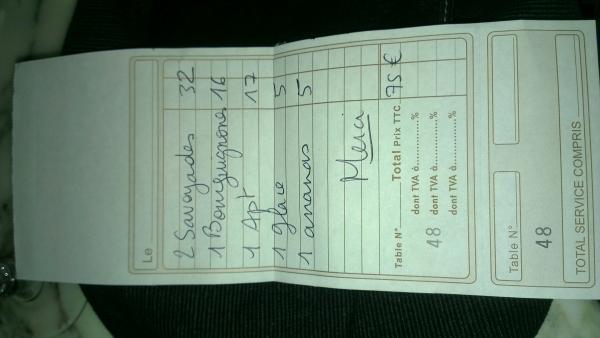 Le
2 Savoyades 32
1 Bourguignonne 16
1 Apt 17
1 glace 5
1 ananas 5
Merci
Table N° Total Prix TTC 75 €
48 dont TVA à............%
dont TVA à............%
dont TVA à............%
Table N°
48
TOTAL SERVICE COMPRIS